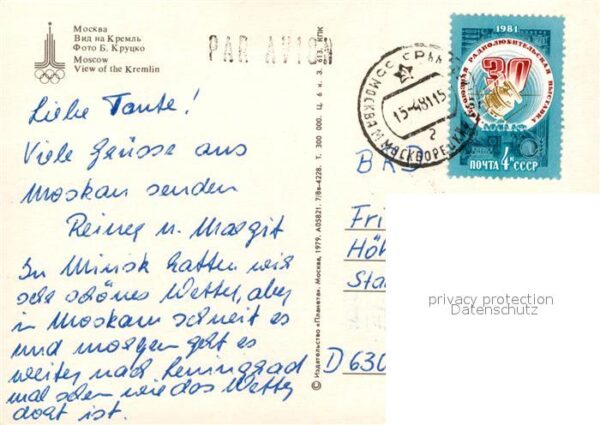 Москва
Вид на Кремль
Фото Б. Круцко
Moscow
View of the Kremlin
PAR AVION
Liebe Tante!
Viele Grüsse aus
Moskau senden
Reiner u. Margit
In Minsk hatten wir
sehr schönes Wetter, aber
in Moskau schneit es
und morgen geht es
weiter nach Leningrad
mal sehen wie das Wetter
dort ist.
© Издательство «Планета». Москва, 1979. А05821. 7/8в-4228. Т. 300 000. Ц. 6 к. З. 613. КПК
1981
ВСЕСОЮЗНАЯ РАДИОЛЮБИТЕЛЬСКАЯ ВЫСТАВКА
30
ПОЧТА 4к СССР
МОСКВА
15-48115
2
BRD
Fri
Höh
Sta
D 630
privacy protection
Datenschutz